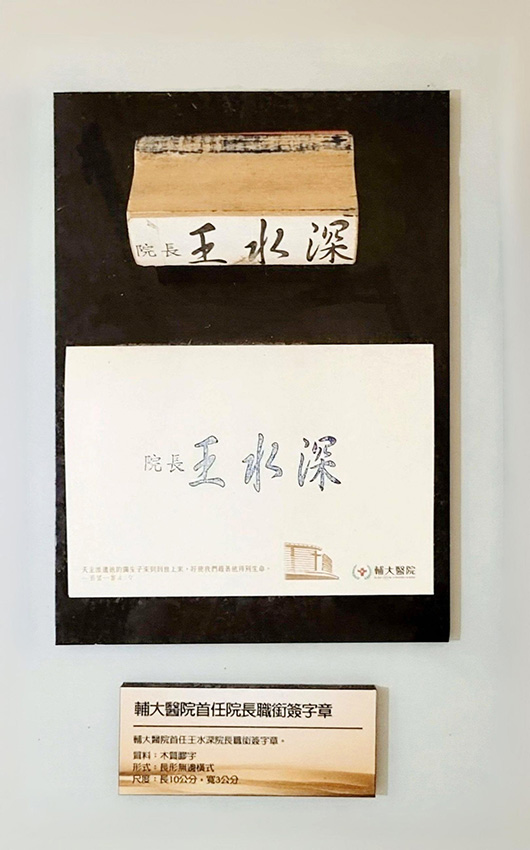 院長 王水深
院長 王水深
天主竟遣祂的獨生子來到世上來，好使我們藉着祂得到生命。
輔大醫院
輔大醫院首任院長職銜簽字章
輔大醫院首任王水深院長職銜簽字章。
質料：木質膠字
形式：長形無邊橫式
尺度：長10公分，寬3公分